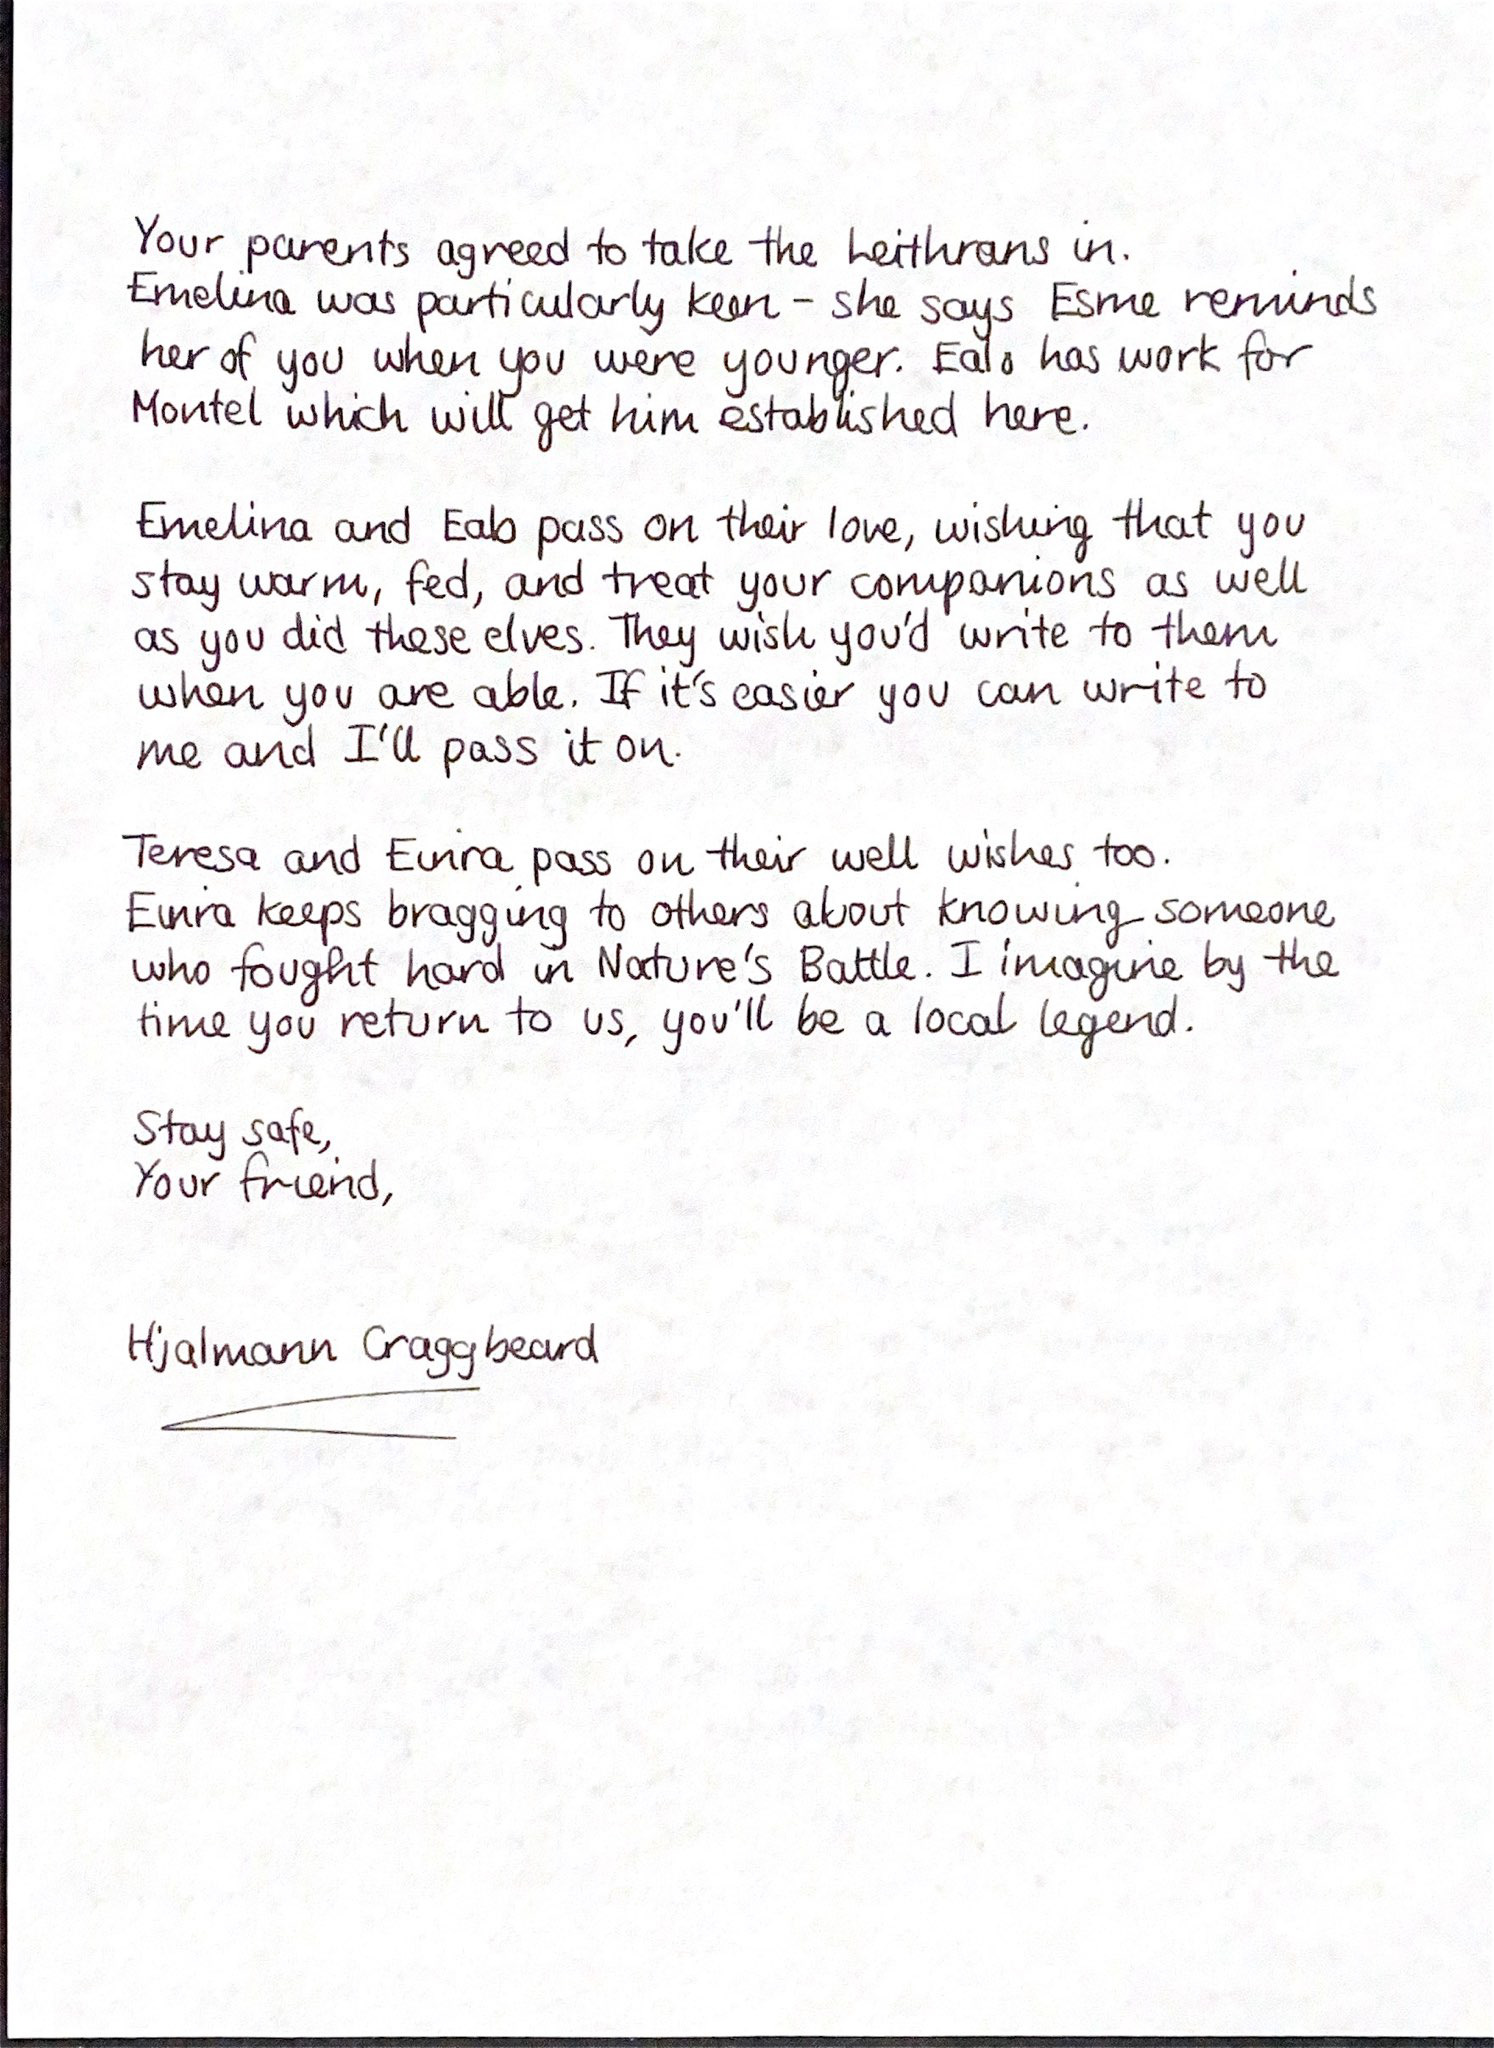 Your parents agreed to take the Leithrans in.
Emelina was particularly keen - she says Esme reminds
her of you when you were younger. Ealo has work for
Montel which will get him established here.
Emelina and Ealo pass on their love, wishing that you
stay warm, fed, and treat your companions as well
as you did these elves. They wish you'd write to them
when you are able. If it's easier you can write to
me and I'll pass it on.
Teresa and Einira pass on their well wishes too.
Einira keeps bragging to others about knowing someone
who fought hard in Nature's Battle. I imagine by the
time you return to us, you'll be a local legend.
Stay safe,
Your friend,
Hjalmann Craggbeard